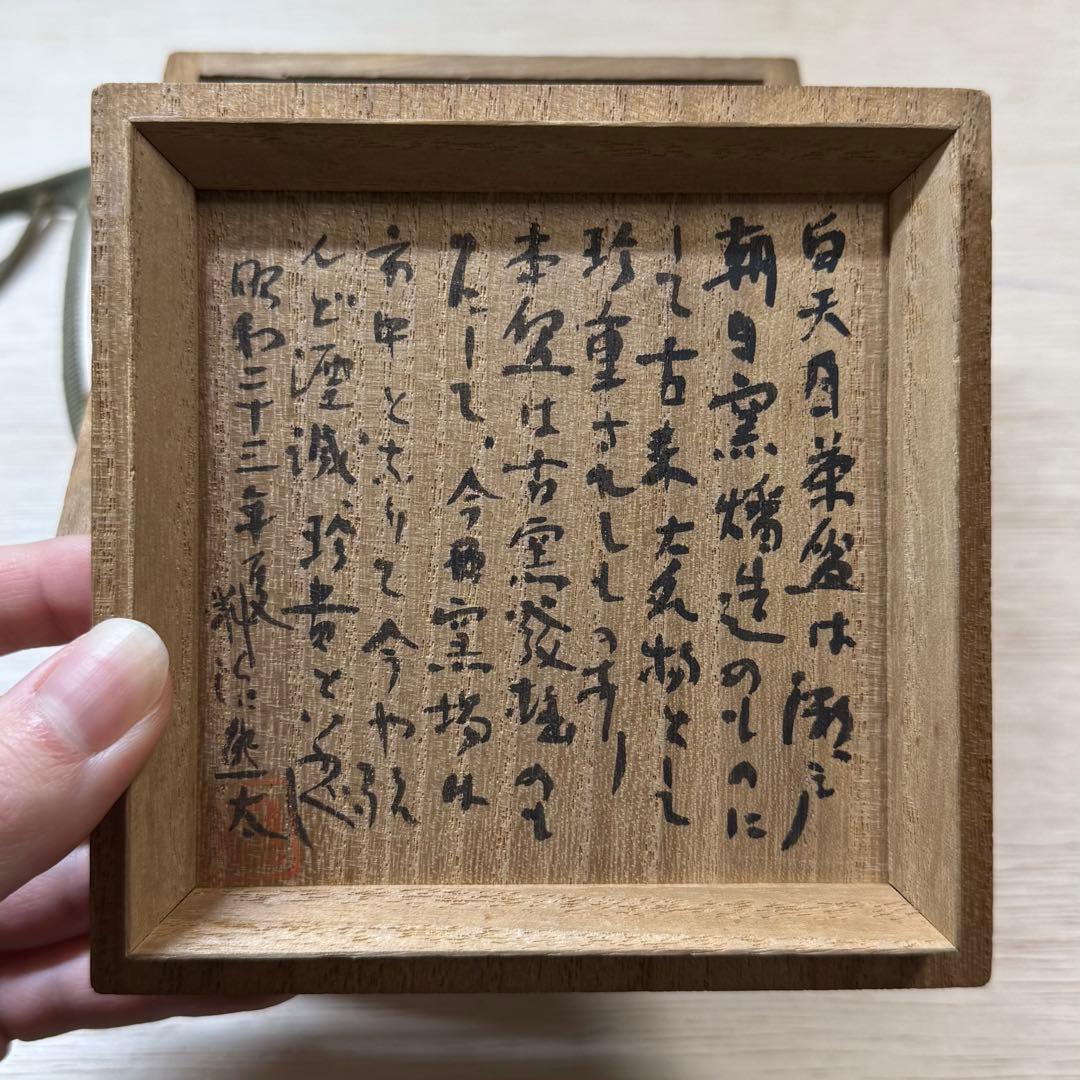 白天目茶盌は瀬戸
朝日窯燔造のものに
して古来大名物とし
珍重されしものなり
本盌は古窯発掘のも
のにして、今日窯場は
市中となりて今や殆
んど湮滅、珍貴と言ふべし
昭和二十三年夏 太